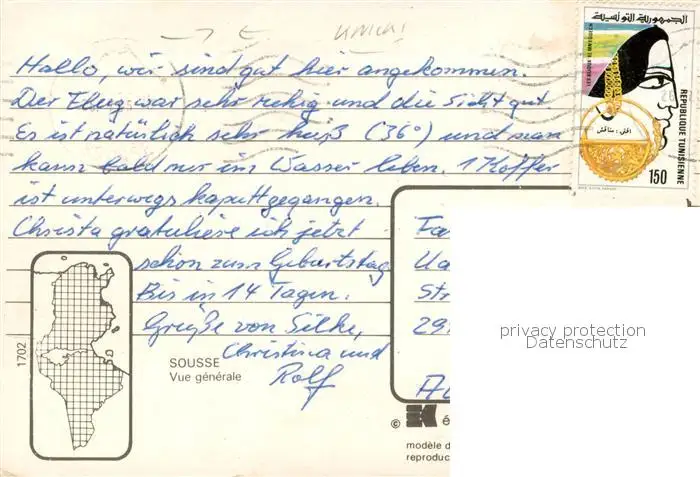 Hallo, wir sind gut hier angekommen.
Der Flug war sehr ruhig und die Sicht gut.
Es ist natürlich sehr heiß (36°) und man
kann bald nur im Wasser leben. 1 Koffer
ist unterwegs kaputtgegangen.
Christa gratuliere ich jetzt
schon zum Geburtstag
Bis in 14 Tagen.
Grüße von Silke,
Christina und
Rolf
الجمهورية التونسية
REPUBLIQUE TUNISIENNE
150
1702
SOUSSE
Vue générale
Fa
Str
291
privacy protection
Datenschutz
© K é
modèle d
reproduc